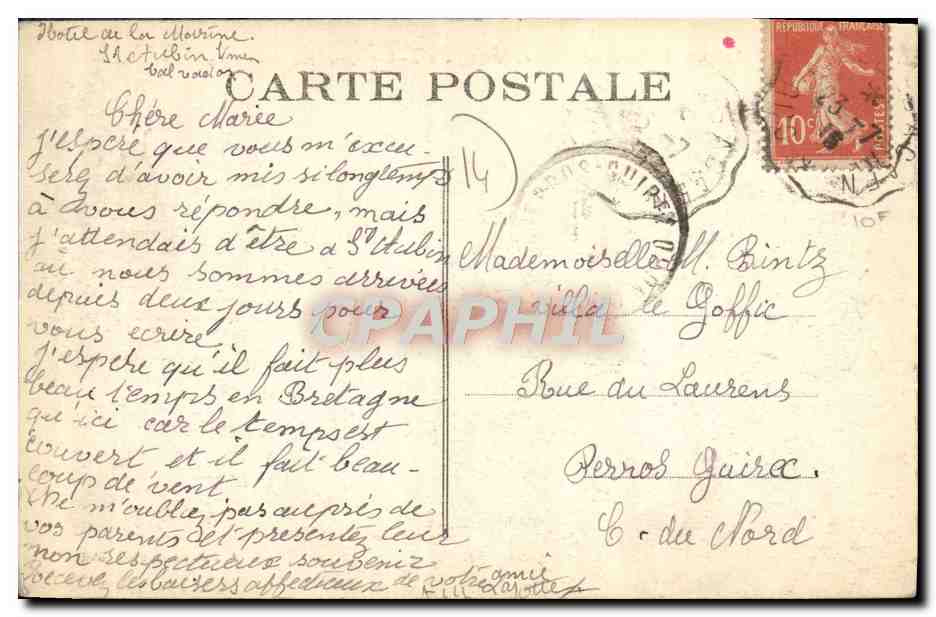 Hotel de la Marine.
St Aubin s/mer
Calvados
CARTE POSTALE
RÉPUBLIQUE FRANÇAISE
10c POSTES
23-7
14
PERROS-GUIREC
Chére Marie
j'espere que vous m'excu-
serez d'avoir mis si longtemps
à avous répondre, mais
j'attendais d'être a St Aubin
où nous sommes arrivées
depuis deux jours pour
vous ecrire.
j'espere qu'il fait plus
beau temps en Bretagne
qu'ici car le temps est
couvert et il fait beau-
coup de vent
Ne m'oubliez pas auprés de
vos parents et presentez leur
mon respectueux souvenir
Recevez les baisers affectueux de votre amie
Mademoiselle M. Bintz
villa le Goffic
Rue du Laurens
Perros Guirec.
C. du Nord
CPAPHIL